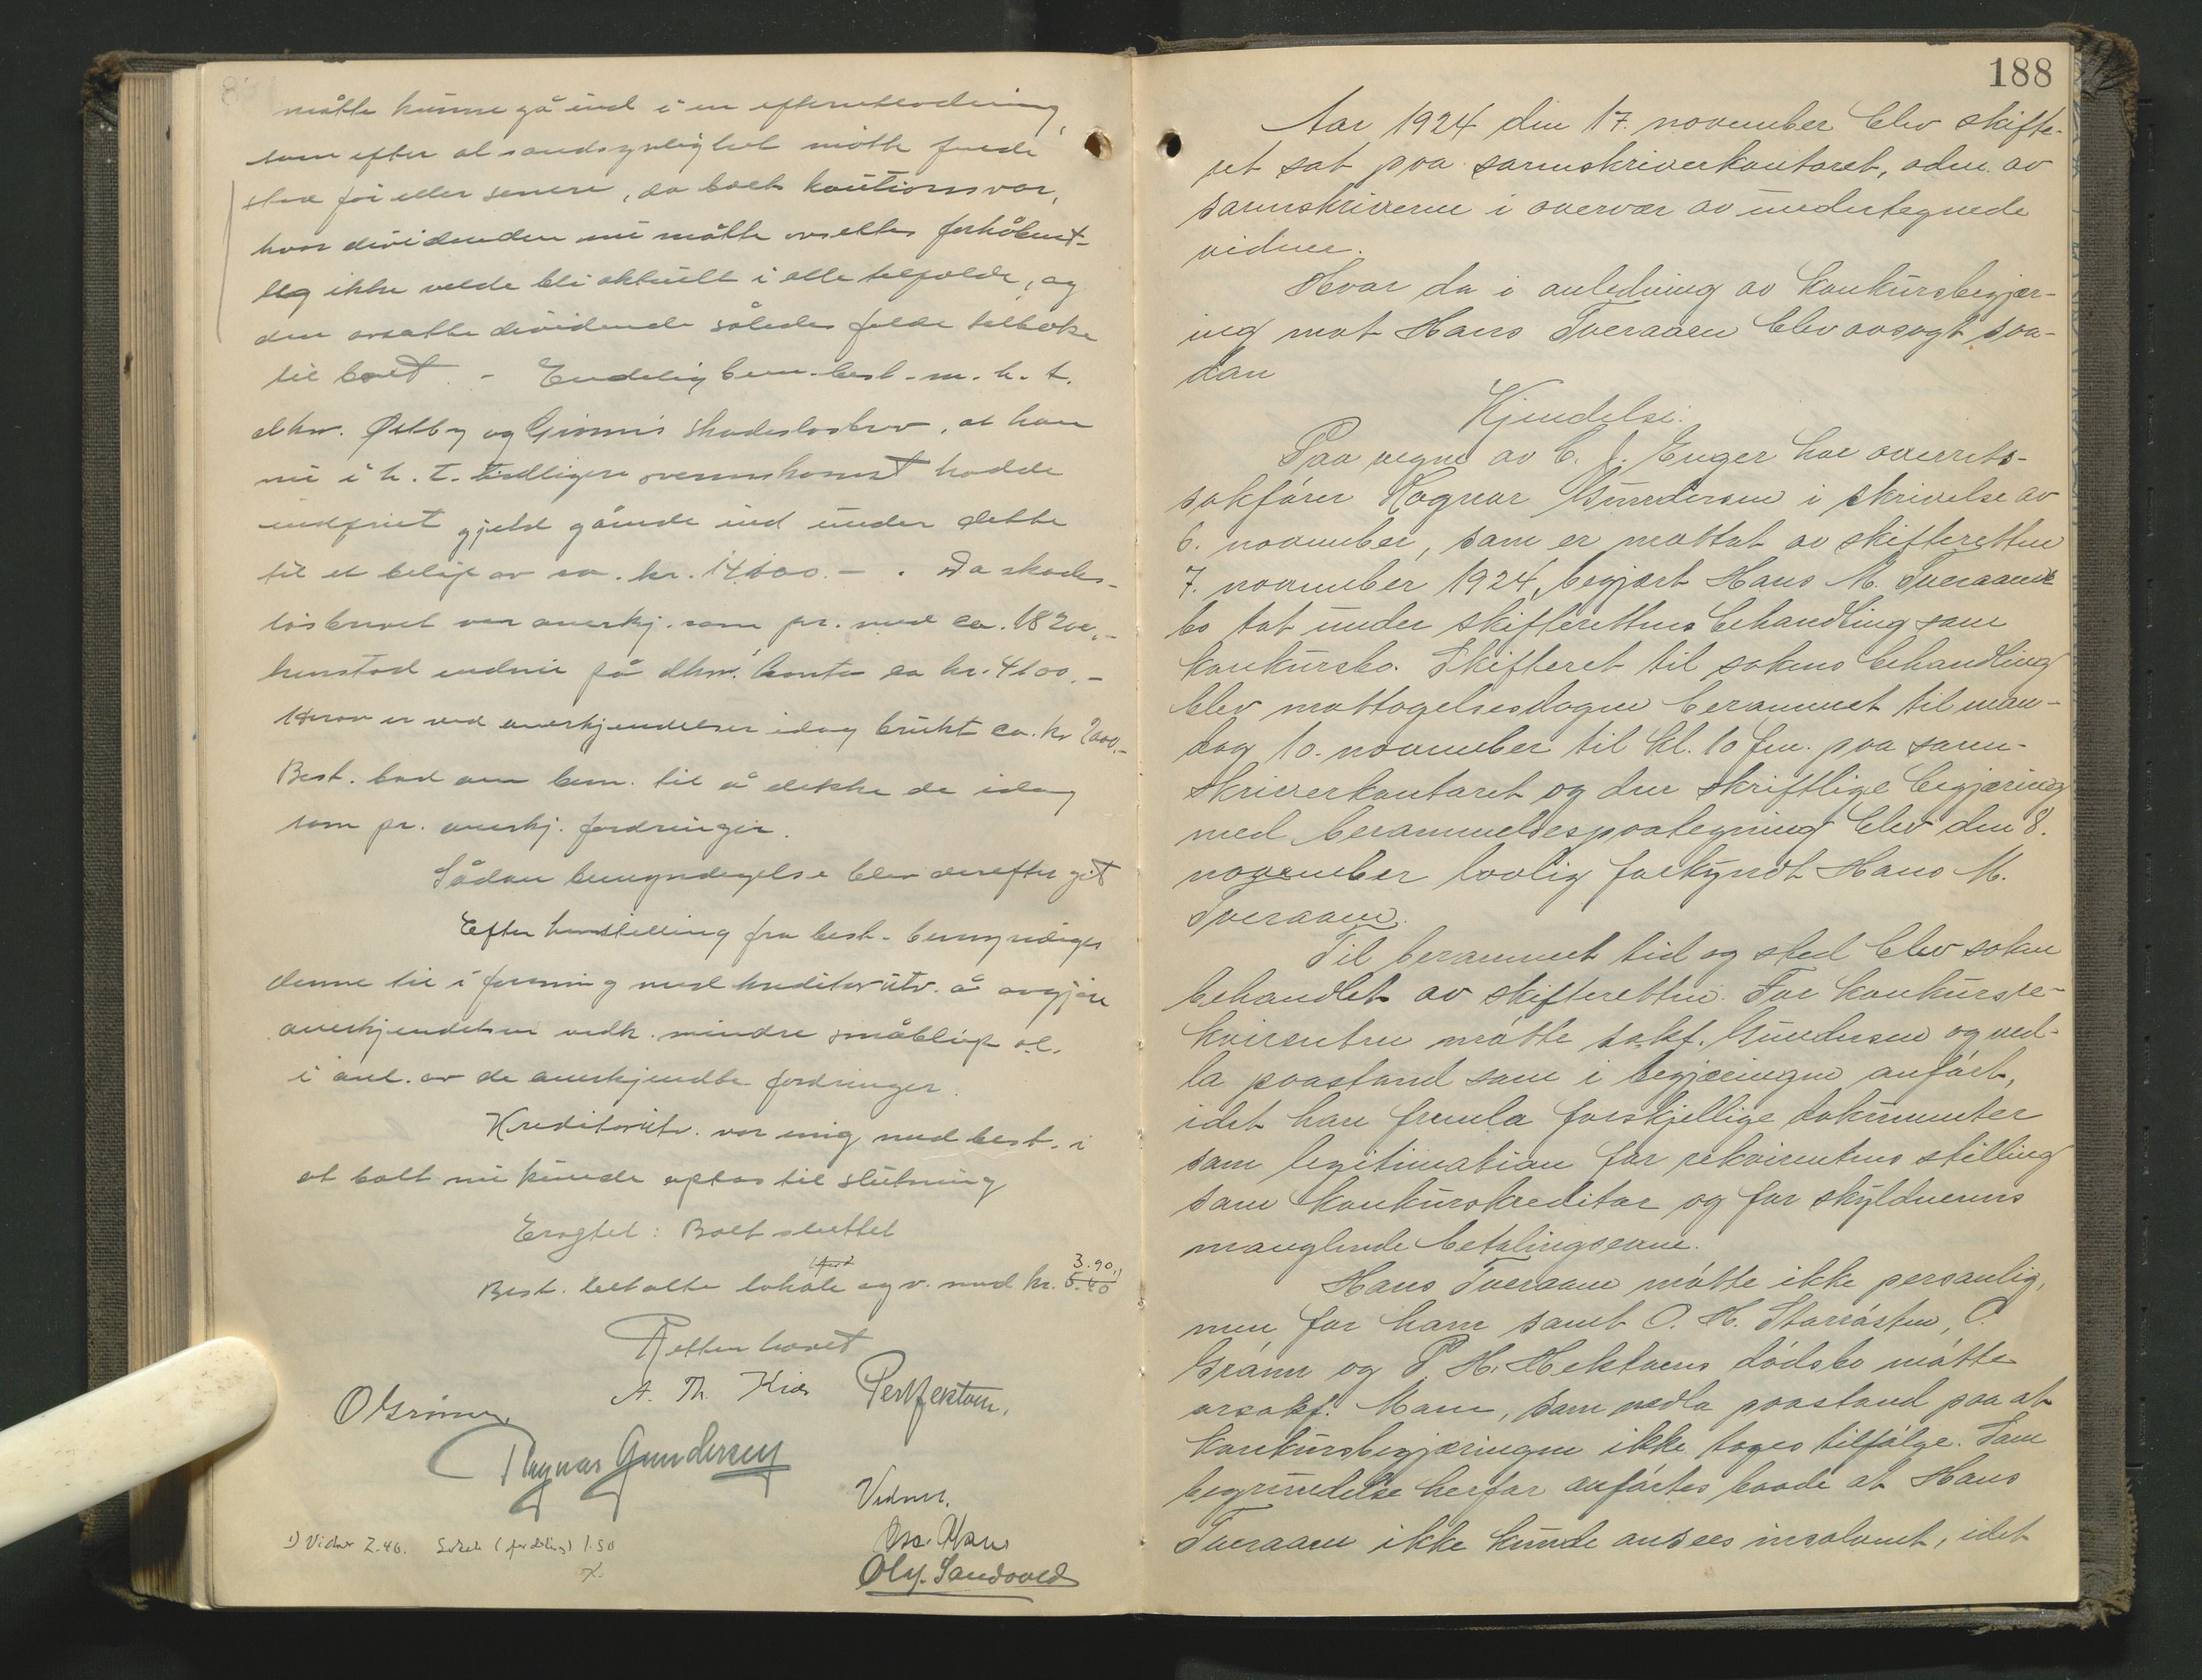 måtte kunne gå ind i en efterutlodning,
som efter al sandsynlighet måtte finde
sted før eller senere, da boets kautionsvar,
hvor dividenden nu måtte avsættes forhåbent-
lig ikke vilde bli aktuelt i alle tilfælde, og
den avsatte dividende således falde tilbake
til boet. - Endelig bem. best. m. h. t.
dhrr. Østby og Grønns skadesløsbrev, at han
nu i h. t. tidligere overenskomst hadde
indfriet gjeld gående ind under dette
til et beløp av ca. kr. 14100.- . Da skades-
løsbrevet var anerkj. som pr. med ca. 18200,-
henstod endnu på dhrr. konto ca kr. 4100.-
Herav er ved anerkjendelser idag brukt ca. kr 2000.-
Best. bad om bem. til å dekke de idag
som pr. anerkj. fordringer.
Sådan bemyndigelse blev derefter git
Efter henstilling fra best. bemyndiges
denne til i forening med kreditorutv. å avgjøre
anerkjendelsen vedk. mindre småbeløp ol.
i anl. av de anerkjendte fordringer.
Kreditorutv. var enig med best. i
at boet nu kunde optas til slutning
Eragtet: Boet sluttet
Best. betalte lokale og v. med kr. 5.40 3.90 1)
Retten hævet
A. Th. Kiær Per Hektoen.
O Grønn
Ragnar Gundersen
Vidner.
Osc. Hans
Olaf. Sandvold
1) Vidner 2.40. Lokale (fordeling) 1.50
188
Aar 1924 den 17. november blev skifte-
ret sat paa sorenskriverkontoret, adm. av
sorenskriveren i overvær av undertegnede
vidner.
Hvor da i anledning av konkursbegjær-
ing mot Hans Tveraaen blev avsagt saa-
dan
Kjendelse:
Paa vegne av C. J. Enger har overrets-
sakfører Ragnar Gundersen i skrivelse av
6. november, som er mottat av skifteretten
7. november 1924, begjært Hans M. Tveraaens
bo tat under skifterettens behandling som
konkursbo. Skifteret til sakens behandling
blev mottagelsesdagen berammet til man-
dag 10. november til kl. 10 fm. paa soren-
skriverkontoret og den skriftlige begjæring
med berammelsespaategning blev den 8.
november lovlig forkyndt Hans M.
Tveraaen.
Til berammet tid og sted blev saken
behandlet av skifteretten. For konkursre-
kvirenten møtte sakf. Gundersen og ned-
la paastand som i begjæringen anført,
idet han fremla forskjellige dokumenter
som legitimation for rekvirentens stilling
som konkurskreditor og for skyldnerens
manglende betalingsevne.
Hans Tveraaen møtte ikke personlig,
men for ham samt O. H. Storrøsten, O.
Grønn og P. H. Hektoens dødsbo møtte
orsakf. Moem, som nedla paastand paa at
konkursbegjæringen ikke toges tilfølge. Som
begrundelse herfor anførtes baade at Hans
Tveraaen ikke kunde ansees insolvent, idet